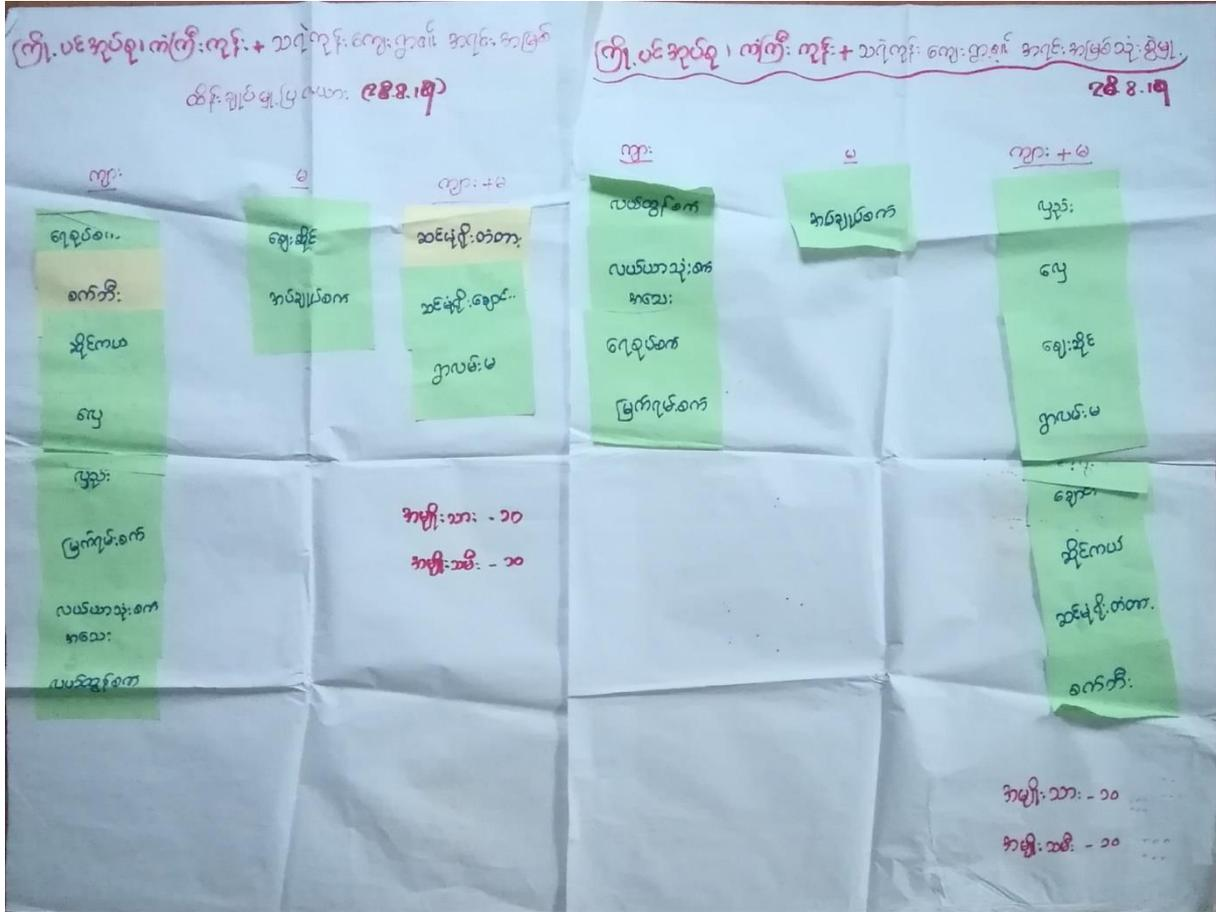 ကြို့ပင်အုပ်စု၊ ကံကြီးကုန်း + သရဲကုန်းကျေးရွာ၏ အရင်းအမြစ်
ထိန်းချုပ်မှုပြဇယား (28.8.19)
ကျား
ရေစုပ်စက်
စက်ဘီး
ဆိုင်ကယ်
လှေ
လှည်း
မြက်ရမ်းစက်
လယ်ယာသုံးစက်
အသေး
လယ်ထွန်စက်
မ
ဈေးဆိုင်
အပ်ချုပ်စက်
ကျား+မ
ဆင်မံရိုးတံတား
ဆင်မံရိုးချောင်း
ရွာလမ်းမ
အမျိုးသား - ၁၀
အမျိုးသမီး - ၁၀
ကြို့ပင်အုပ်စု၊ ကံကြီးကုန်း + သရဲကုန်းကျေးရွာ၏ အရင်းအမြစ်သုံးစွဲမှု
28.8.19
ကျား
လယ်ထွန်စက်
လယ်ယာသုံးစက်
အသေး
ရေစုပ်စက်
မြက်ရမ်းစက်
မ
အပ်ချုပ်စက်
ကျား+မ
လှည်း
လှေ
ဈေးဆိုင်
ရွာလမ်းမ
ချောင်း
ဆိုင်ကယ်
ဆင်မံရိုးတံတား
စက်ဘီး
အမျိုးသား - ၁၀
အမျိုးသမီး - ၁၀